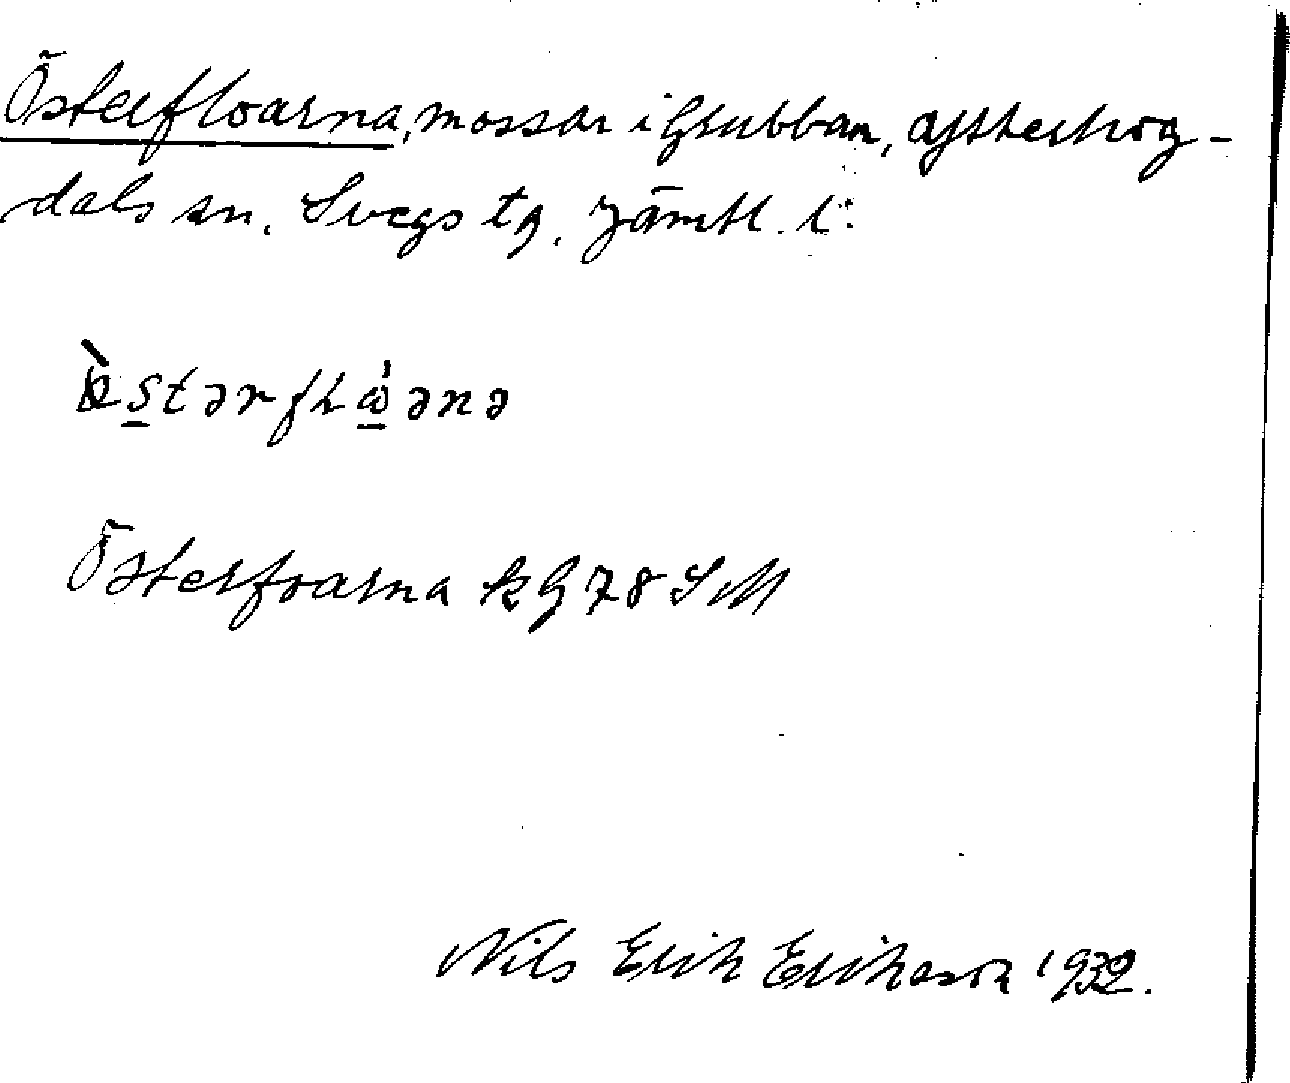 Österfloarna, mossar i Grubban, Ytterhog-
dals sn. Svegs tg, Jämtl. l.
Österfoarna k G 78 SM
Nils Erik Erikson 1932.